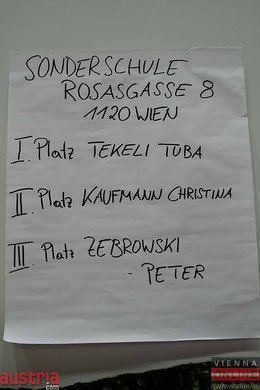 SONDERSCHULE
ROSASGASSE 8
1120 WIEN
I. Platz TEKELI TUBA
II. Platz KAUFMANN CHRISTINA
III. Platz ZEBROWSKI
-- PETER
austria.com
VIENNA
ONLINE